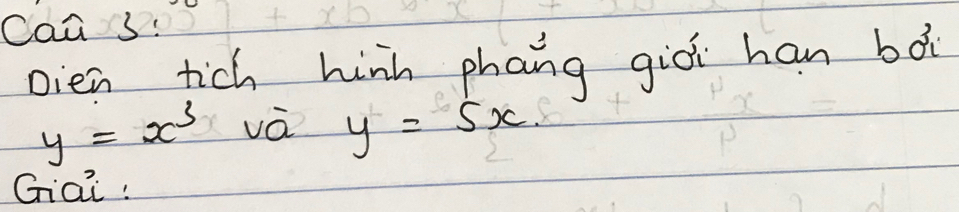 Câu 3:
Diện tích hình phẳng giới hạn bởi
y = x³ và y = 5x.
Giải: